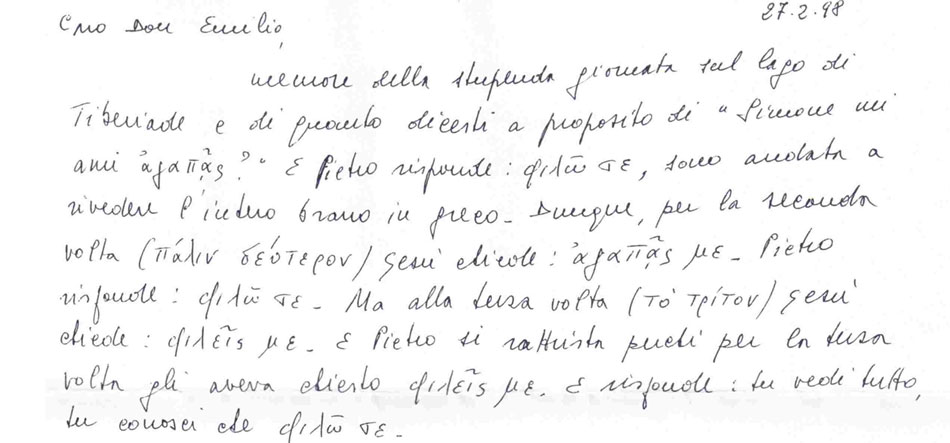 27.2.98
Cmo Don Emilio,
memore della stupenda giornata sul lago di
Tiberiade e di quanto dicesti a proposito di "Simone mi
ami ἀγαπᾷς?" E Pietro risponde: φιλῶ σε, sono andata a
rivedere l'intero brano in greco - Dunque, per la seconda
volta (πάλιν δεύτερον) Gesù chiede: ἀγαπᾷς με - Pietro
risponde: φιλῶ σε - Ma alla terza volta (τὸ τρίτον) Gesù
chiede: φιλεῖς με - E Pietro si rattrista perché per la terza
volta gli aveva chiesto φιλεῖς με. E risponde: tu vedi tutto,
tu conosci che φιλῶ σε -